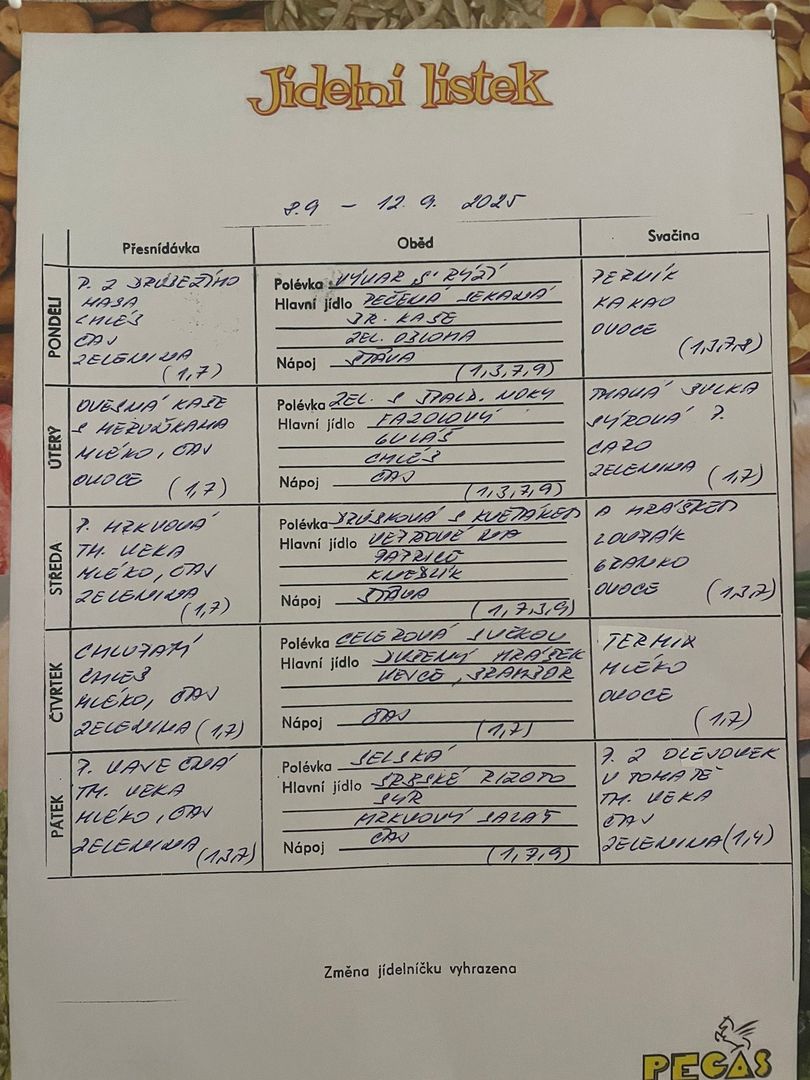 Jídelní lístek
8.9 – 12.9. 2025
Přesnídávka Oběd Svačina
PONDELÍ
P. Z DRŮBEŽÍHO
MASA
CHLÉB
ČAJ
ZELENINA
(1,7)
Polévka VÝVAR S RÝŽÍ
Hlavní jídlo PEČENÁ SEKANÁ
BR. KAŠE
ZEL. OBLOHA
Nápoj ŠŤÁVA
(1,3,7,9)
PERNÍK
KAKAO
OVOCE
(1,3,7,8)
ÚTERÝ
OVESNÁ KAŠE
S MERUŇKAMA
MLÉKO, ČAJ
OVOCE (1,7)
Polévka ZEL. S ŠPALD. NOKY
Hlavní jídlo FAZOLOVÝ
GULÁŠ
CHLÉB
Nápoj ČAJ
(1,3,7,9)
TMAVÁ BULKA
SÝROVÁ P.
CARO
ZELENINA (1,7)
STŘEDA
P. MRKVOVÁ
TM. VEKA
MLÉKO, ČAJ
ZELENINA
(1,7)
Polévka DRŮBKOVÁ S KVĚTÁKEM
A HRÁŠKEM
Hlavní jídlo VEPŘOVÉ NA
PAPRICE
KNEDLÍK
Nápoj ŠŤÁVA
(1,7,3,9)
LOUPÁK
GRANKO
OVOCE (1,3,7)
ČTVRTEK
CHLUPATÁ
CHLÉB
MLÉKO, ČAJ
ZELENINA (1,7)
Polévka CELEROVÁ S VLČKOU
Hlavní jídlo DUŠENÝ HRÁŠEK
VEJCE, BRAMBOR
Nápoj ČAJ
(1,7)
TERMIX
MLÉKO
OVOCE
(1,7)
PÁTEK
P. VAJEČNÁ
TM. VEKA
MLÉKO, ČAJ
ZELENINA (1,3,7)
Polévka SELSKÁ
Hlavní jídlo SRBSKÉ RIZOTO
SÝR
MRKVOVÝ SALÁT
Nápoj ČAJ
(1,7,9)
P. Z OLEJOVEK
V TOMATĚ
TM. VEKA
ČAJ
ZELENINA (1,4)
Změna jídelníčku vyhrazena
PEGAS